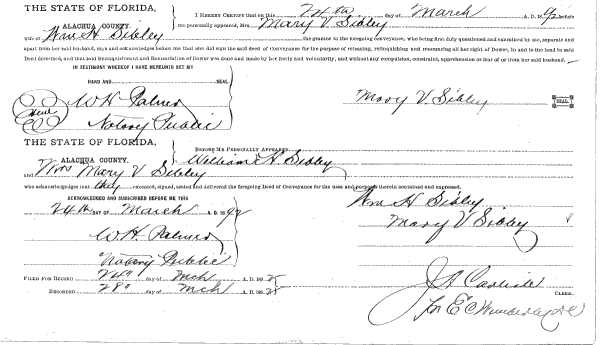 THE STATE OF FLORIDA,
ALACHUA COUNTY.
I HEREBY CERTIFY that on this 24th day of March A. D. 1892 before
me personally appeared, Mrs. Mary V Sibley
wife of Wm H Sibley the grantor in the foregoing conveyance, who being first duly questioned and examined by me, separate and
apart from her said husband, says and acknowledges before me that she did sign the said deed of Conveyance for the purpose of releasing, relinquishing and renouncing all her right of Dower, in and to the land in said
Deed described, and that said Relinquishment and Renunciation of Dower was done and made by her freely and voluntarily, and without any compulsion, constraint, apprehension or fear of or from her said husband.
IN TESTIMONY WHEREOF I HAVE HEREUNTO SET MY
HAND AND SEAL
W H Palmer
Notary Public
Mary V. Sibley SEAL
THE STATE OF FLORIDA,
ALACHUA COUNTY.
BEFORE ME PERSONALLY APPEARED
William H Sibley
and Mrs Mary V Sibley
who acknowledges that they executed, signed, sealed and delivered the foregoing Deed of Conveyance for the uses and purposes therein contained and expressed.
ACKNOWLEDGED AND SUBSCRIBED BEFORE ME THIS
24th DAY OF March A. D. 1892
W. H. Palmer
Notary Public
Wm H Sibley
Mary V Sibley
FILED FOR RECORD 24" day of Mch A. D. 189
RECORDED 28" day of Mch A. D. 189
J A Carlisle CLERK.
for E C Wimberley DC